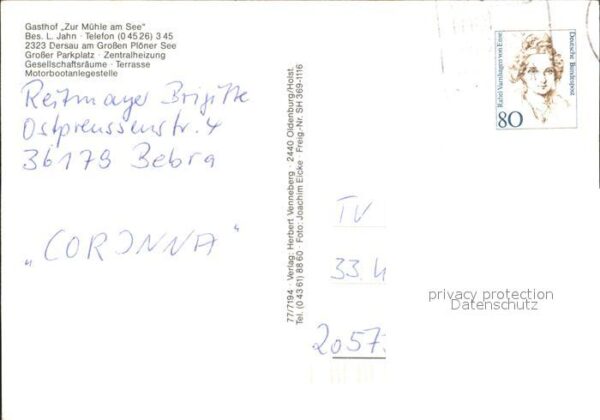 Gasthof „Zur Mühle am See"
Bes. L. Jahn · Telefon (0 45 26) 3 45
2323 Dersau am Großen Plöner See
Großer Parkplatz · Zentralheizung
Gesellschaftsräume · Terrasse
Motorbootanlegestelle
Reitmayer Brigitte
Ostpreussenstr. 4
36179 Bebra
„CORONNA"
77/7194 · Verlag: Herbert Venneberg · 2440 Oldenburg/Holst.
Tel. (0 43 61) 88 60 · Foto: Joachim Eicke · Freig.-Nr. SH 369-1116
Rahel Varnhagen von Ense
Deutsche Bundespost
80
TV
33.
2057
privacy protection
Datenschutz